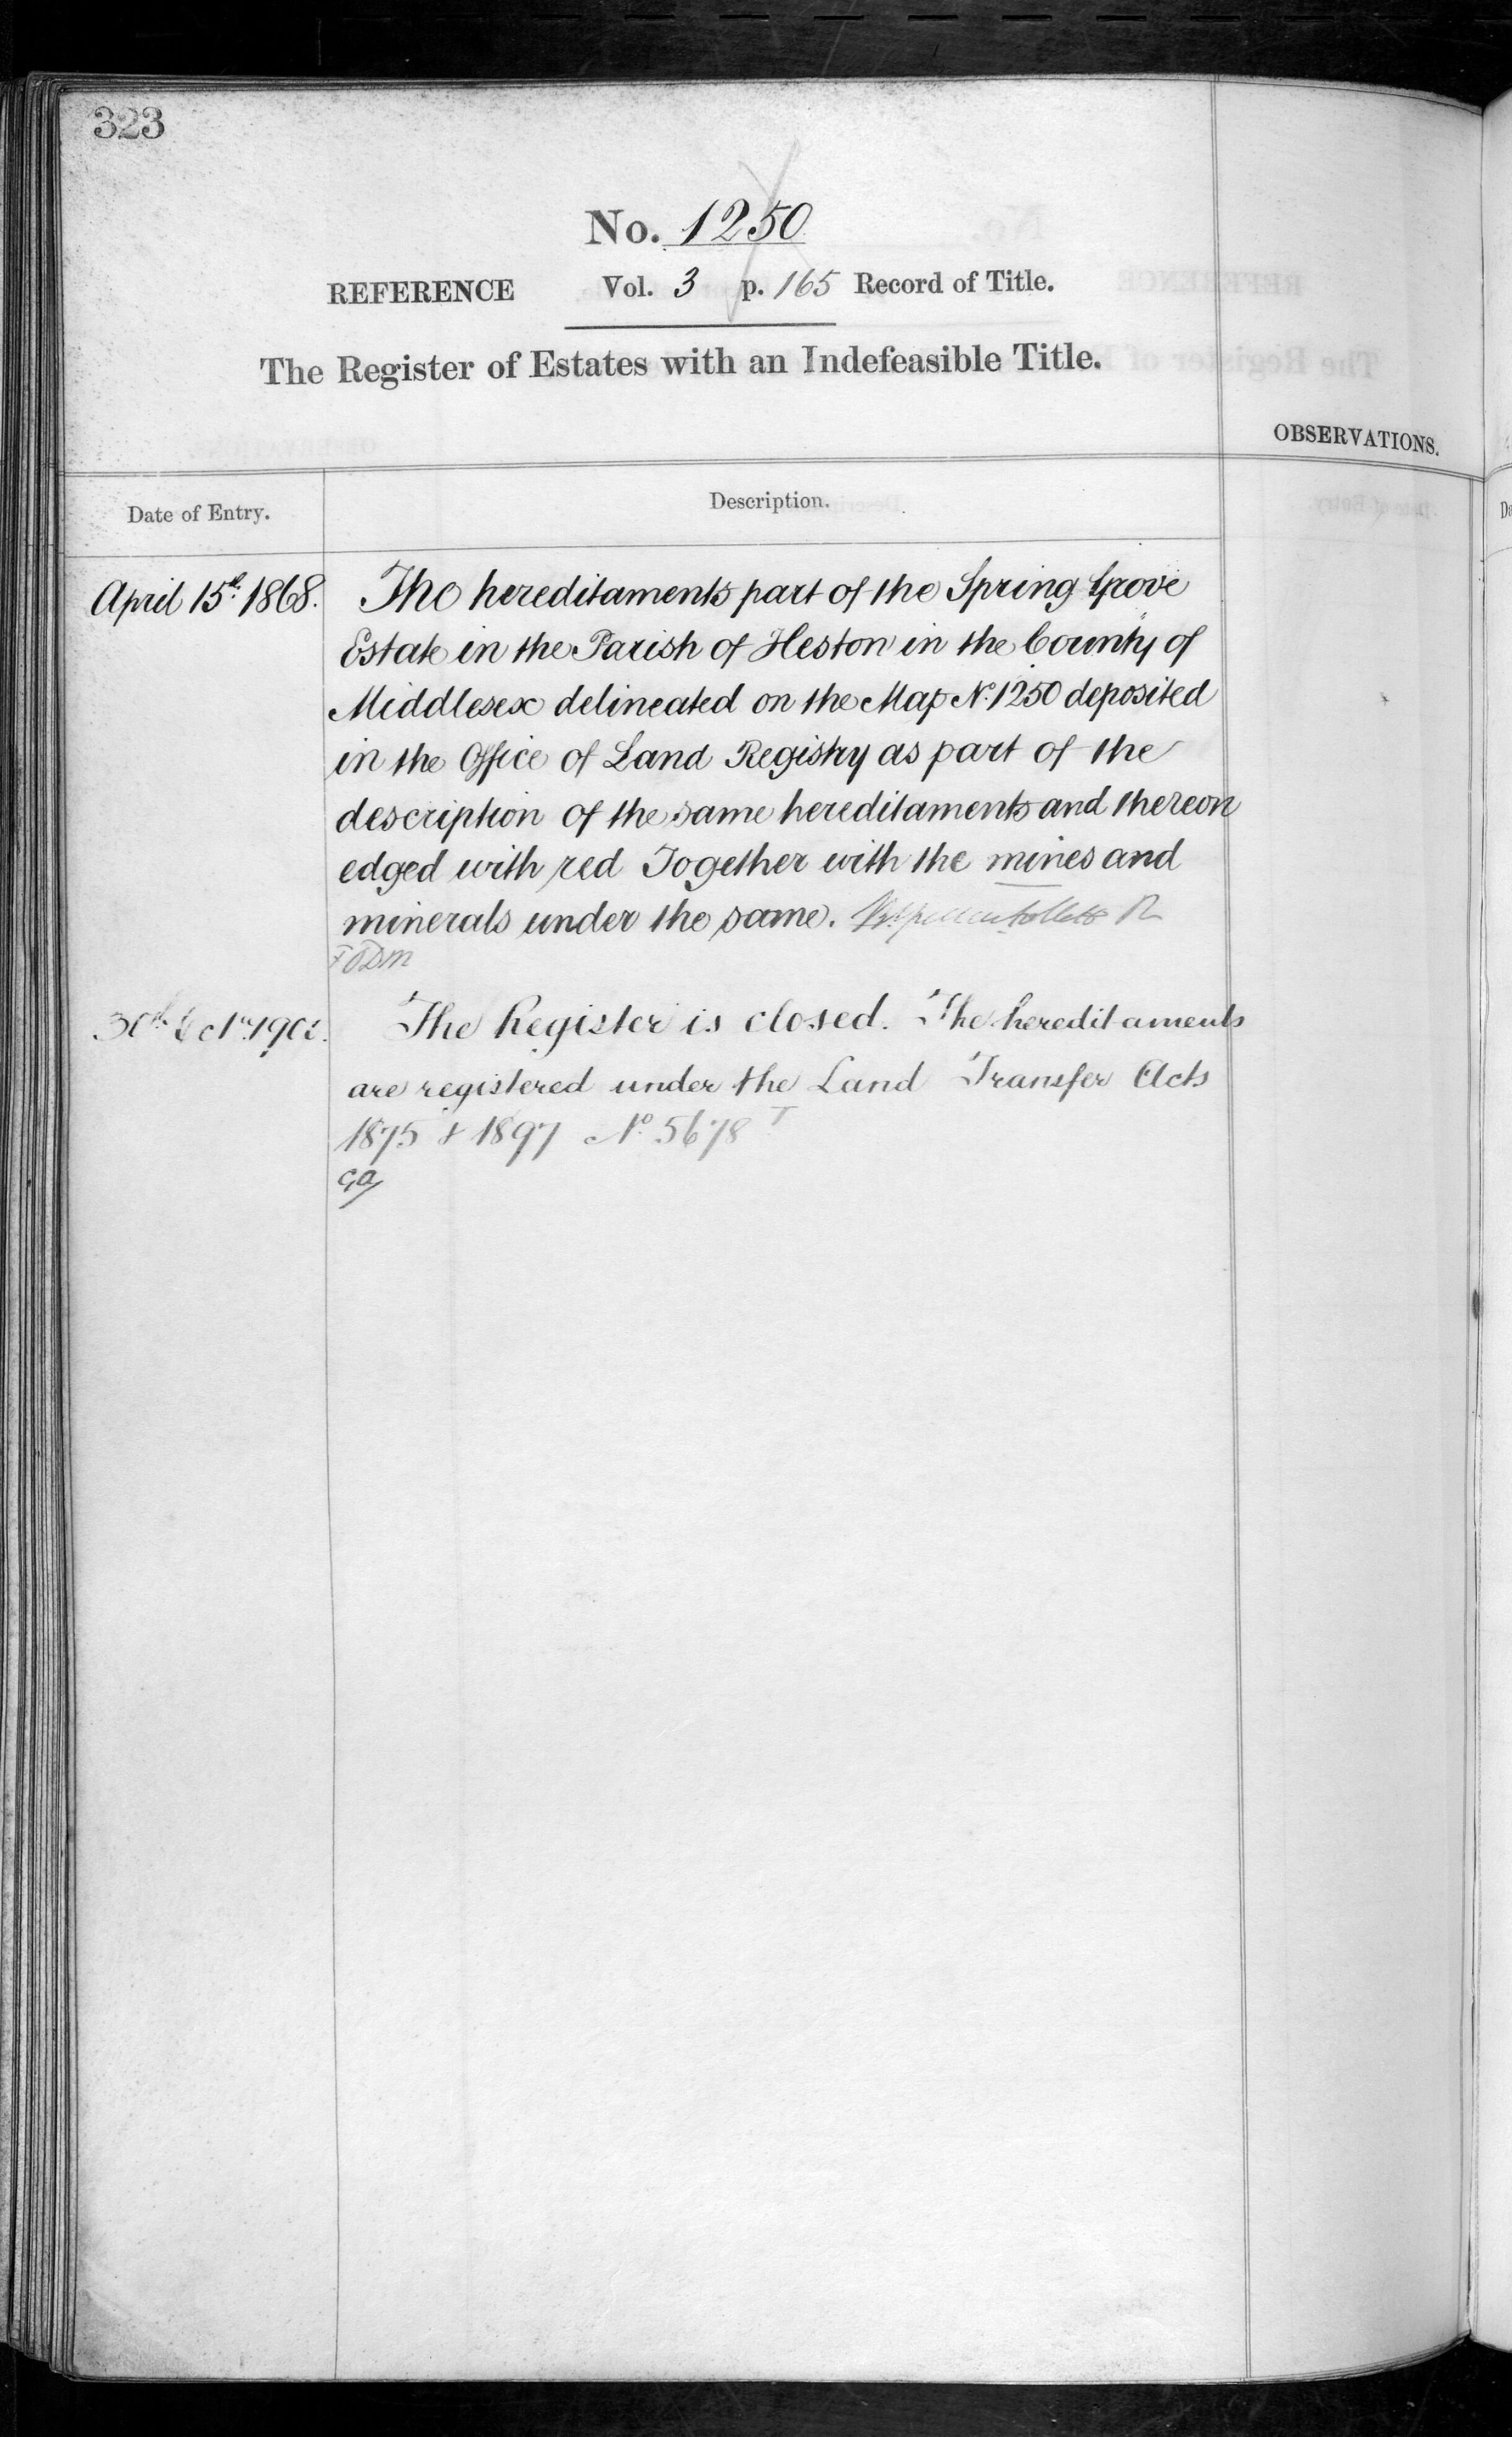 323
No. 1250
REFERENCE Vol. 3 p. 165 Record of Title.
The Register of Estates with an Indefeasible Title.
OBSERVATIONS.
Date of Entry. Description.
April 15th 1868. The hereditaments part of the Spring Grove
Estate in the Parish of Heston in the County of
Middlesex delineated on the Map No. 1250 deposited
in the Office of Land Registry as part of the
description of the same hereditaments and thereon
edged with red Together with the mines and
minerals under the same. Follett R
30th Octr.
The Register is closed. The hereditaments
are registered under the Land Transfer Acts
1875 & 1897 No 5678